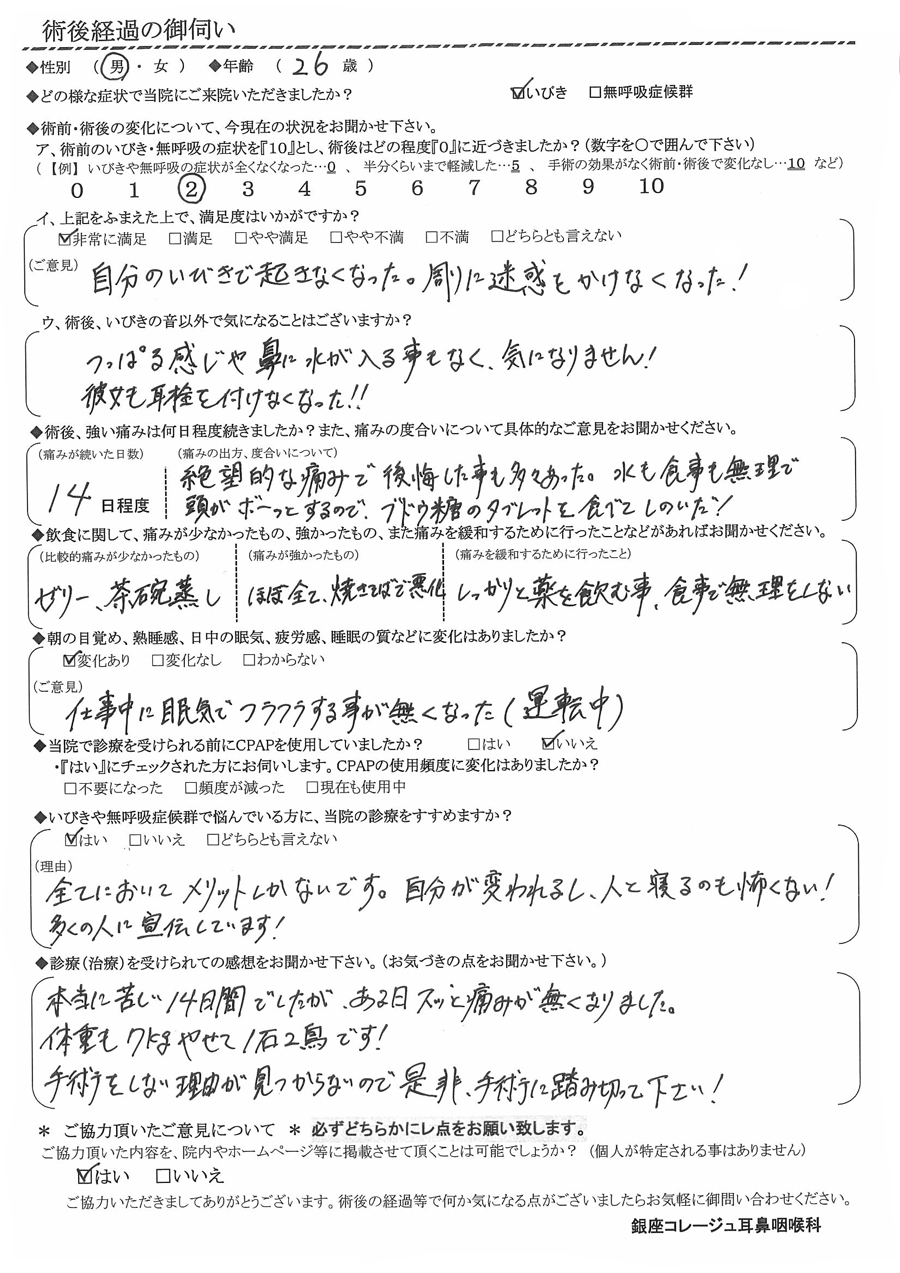 術後経過の御伺い
◆性別 （ 男 ・ 女 ） ◆年齢 （ 26 歳 ）
◆どの様な症状で当院にご来院いただきましたか？ ☑いびき □無呼吸症候群
◆術前・術後の変化について、今現在の状況をお聞かせ下さい。
ア、術前のいびき・無呼吸の症状を『10』とし、術後はどの程度『0』に近づきましたか？（数字を〇で囲んで下さい）
（【例】いびきや無呼吸の症状が全くなくなった…0 、 半分くらいまで軽減した…5 、 手術の効果がなく術前・術後で変化なし…10 など）
0 1 ② 3 4 5 6 7 8 9 10
イ、上記をふまえた上で、満足度はいかがですか？
☑非常に満足 □満足 □やや満足 □やや不満 □不満 □どちらとも言えない
（ご意見） 自分のいびきで起きなくなった。周りに迷惑をかけなくなった！
ウ、術後、いびきの音以外で気になることはございますか？
つっぱる感じや鼻に水が入る事もなく、気になりません！
彼女も耳栓を付けなくなった!!
◆術後、強い痛みは何日程度続きましたか？また、痛みの度合いについて具体的なご意見をお聞かせください。
（痛みが続いた日数） （痛みの出方、度合いについて）
14 日程度 絶望的な痛みで後悔した事も多々あった。水も食事も無理で
頭がボーっとするので、ブドウ糖のタブレットを食べてしのいだ！
◆飲食に関して、痛みが少なかったもの、強かったもの、また痛みを緩和するために行ったことなどがあればお聞かせください。
（比較的痛みが少なかったもの） （痛みが強かったもの） （痛みを緩和するために行ったこと）
ゼリー、茶碗蒸し ほぼ全て、焼きそばで悪化 しっかりと薬を飲む事、食事で無理をしない
◆朝の目覚め、熟睡感、日中の眠気、疲労感、睡眠の質などに変化はありましたか？
☑変化あり □変化なし □わからない
（ご意見）
仕事中に眠気でフラフラする事が無くなった（運転中）
◆当院で診療を受けられる前にCPAPを使用していましたか？ □はい ☑いいえ
・『はい』にチェックされた方にお伺いします。CPAPの使用頻度に変化はありましたか？
□不要になった □頻度が減った □現在も使用中
◆いびきや無呼吸症候群で悩んでいる方に、当院の診療をすすめますか？
☑はい □いいえ □どちらとも言えない
（理由）
全てにおいてメリットしかないです。自分が変われるし、人と寝るのも怖くない！
多くの人に宣伝しています！
◆診療（治療）を受けられての感想をお聞かせ下さい。（お気づきの点をお聞かせ下さい。）
本当に苦しい14日間でしたが、ある日スッと痛みが無くなりました。
体重も7kgやせて1石2鳥です！
手術をしない理由が見つからないので是非、手術に踏み切って下さい！
＊ ご協力頂いたご意見について ＊ 必ずどちらかにレ点をお願い致します。
ご協力頂いた内容を、院内やホームページ等に掲載させて頂くことは可能でしょうか？ （個人が特定される事はありません）
☑はい □いいえ
ご協力いただきましてありがとうございます。術後の経過等で何か気になる点がございましたらお気軽に御問い合わせください。
銀座コレージュ耳鼻咽喉科